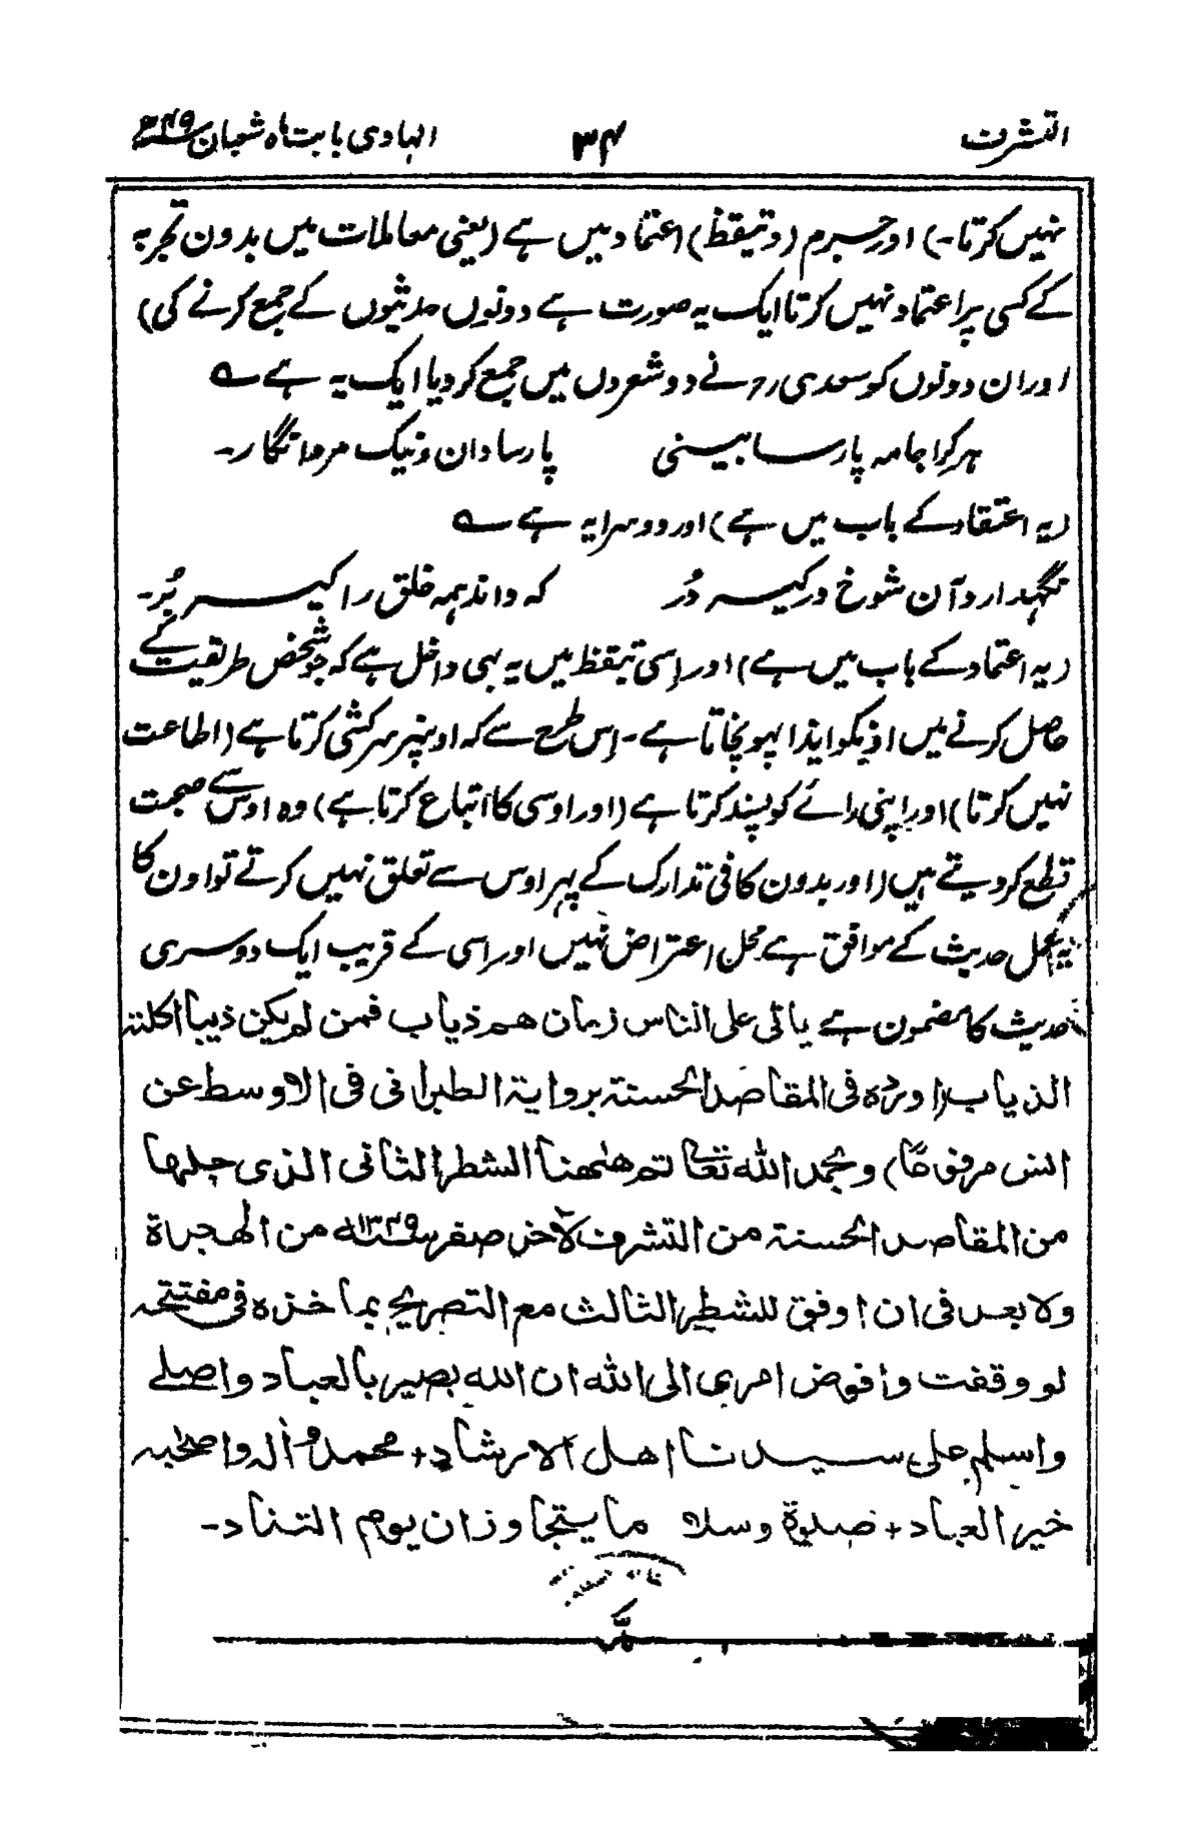 التشرف ۳۴ الہادی بابت ماہ شعبان ۱۳۴۹ھ
نہیں کرتا۔) اور حزم (وتیقظ) اعتماد میں ہے (یعنی معاملات میں بدون تجربہ
کے کسی پر اعتماد نہیں کرتا ایک یہ صورت ہے دونوں حدیثوں کے جمع کرنے کی)
اور ان دونوں کو سعدی رح نے دو شعروں میں جمع کر دیا ایک یہ ہے ؎
ہر کرا جامہ پارسا بینی پارسا دان و نیک مرد انگار۔
(یہ اعتقاد کے باب میں ہے) اور دوسرا یہ ہے ؎
نگہدارد آن شوخ در کیسہ دُر کہ داند ہمہ خلق را کیسہ بُر۔
(یہ اعتماد کے باب میں ہے) اور اسی تیقظ میں یہ بہی داخل ہے کہ جو شخص طریقت کے
حاصل کرنے میں اونکو ایذا پہونچاتا ہے۔ اِس طرح سے کہ اونپر سرکشی کرتا ہے (اطاعت
نہیں کرتا) اور اپنی رائے کو پسند کرتا ہے (اور اوسی کا اتباع کرتا ہے) وہ اوس سے صحبت
قطع کر دیتے ہیں (اور بدون کافی تدارک کے پہر اوس سے تعلق نہیں کرتے تو اون کا
یہ عمل حدیث کے موافق ہے محل اعتراض نہیں اور اسی کے قریب ایک دوسری
حدیث کا مضمون ہے یاتی علی الناس زمان هم ذیاب فمن لم یکن ذیبا اکلته
الذیاب (اورده فی المقاصد الحسنة بروایة الطبرانی فی الاوسط عن
انس مرفوعًا) وبحمد الله تعالى تم ههنا الشطر الثانی الذی جلها
من المقاصد الحسنة من التشرف لآخر صفر سنه ۱۳۴۹ه من الهجرة
ولا بعد فی ان اوفق للشطر الثالث مع التصریح بماخذه فی مفتتحه
لو وقفت وافوض امری الی الله ان الله بصیر بالعباد واصلے
واسلم علی سیدنا اهل الارشاد+ محمد وآله واصحٰبه
خیر العباد+ صلوة وسلا ما یتجاوزان یوم التناد۔